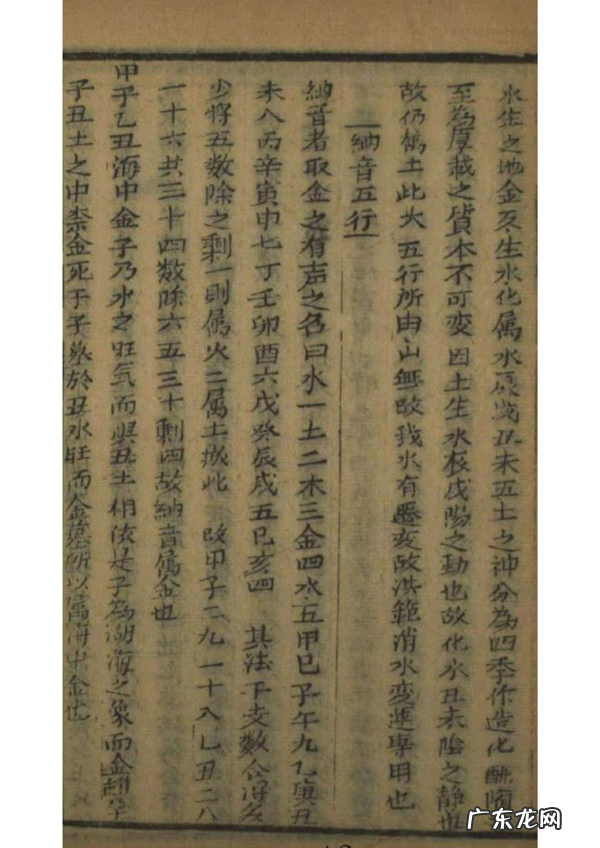 水生之地金反生水化属水辰戌丑未五土之神分為四季作造化
至為厚越之貨本不可変因土生水辰戌陽之動也故化水丑未陰之静也
故仍属土此大五行所由山無改我水有遷変故洪範消水変運専用也
納音五行
納音者取金之有声之名曰水一土二木三金四水五甲巳子午九乙庚丑
未八丙辛寅申七丁壬卯酉六戊癸辰戌五巳亥四 其法干支数合得多
少将五数除之剩一則属火二属土依此 改甲子二九一十八乙丑二八
一十六共三十四数除六五三十剩四故納音属金也
甲子乙丑海中金子乃水之旺気而與丑土相依是子為湖海之象而金
子丑土之中柰金死于子墓於丑水旺而金墓所以属海中金也
广东龙网